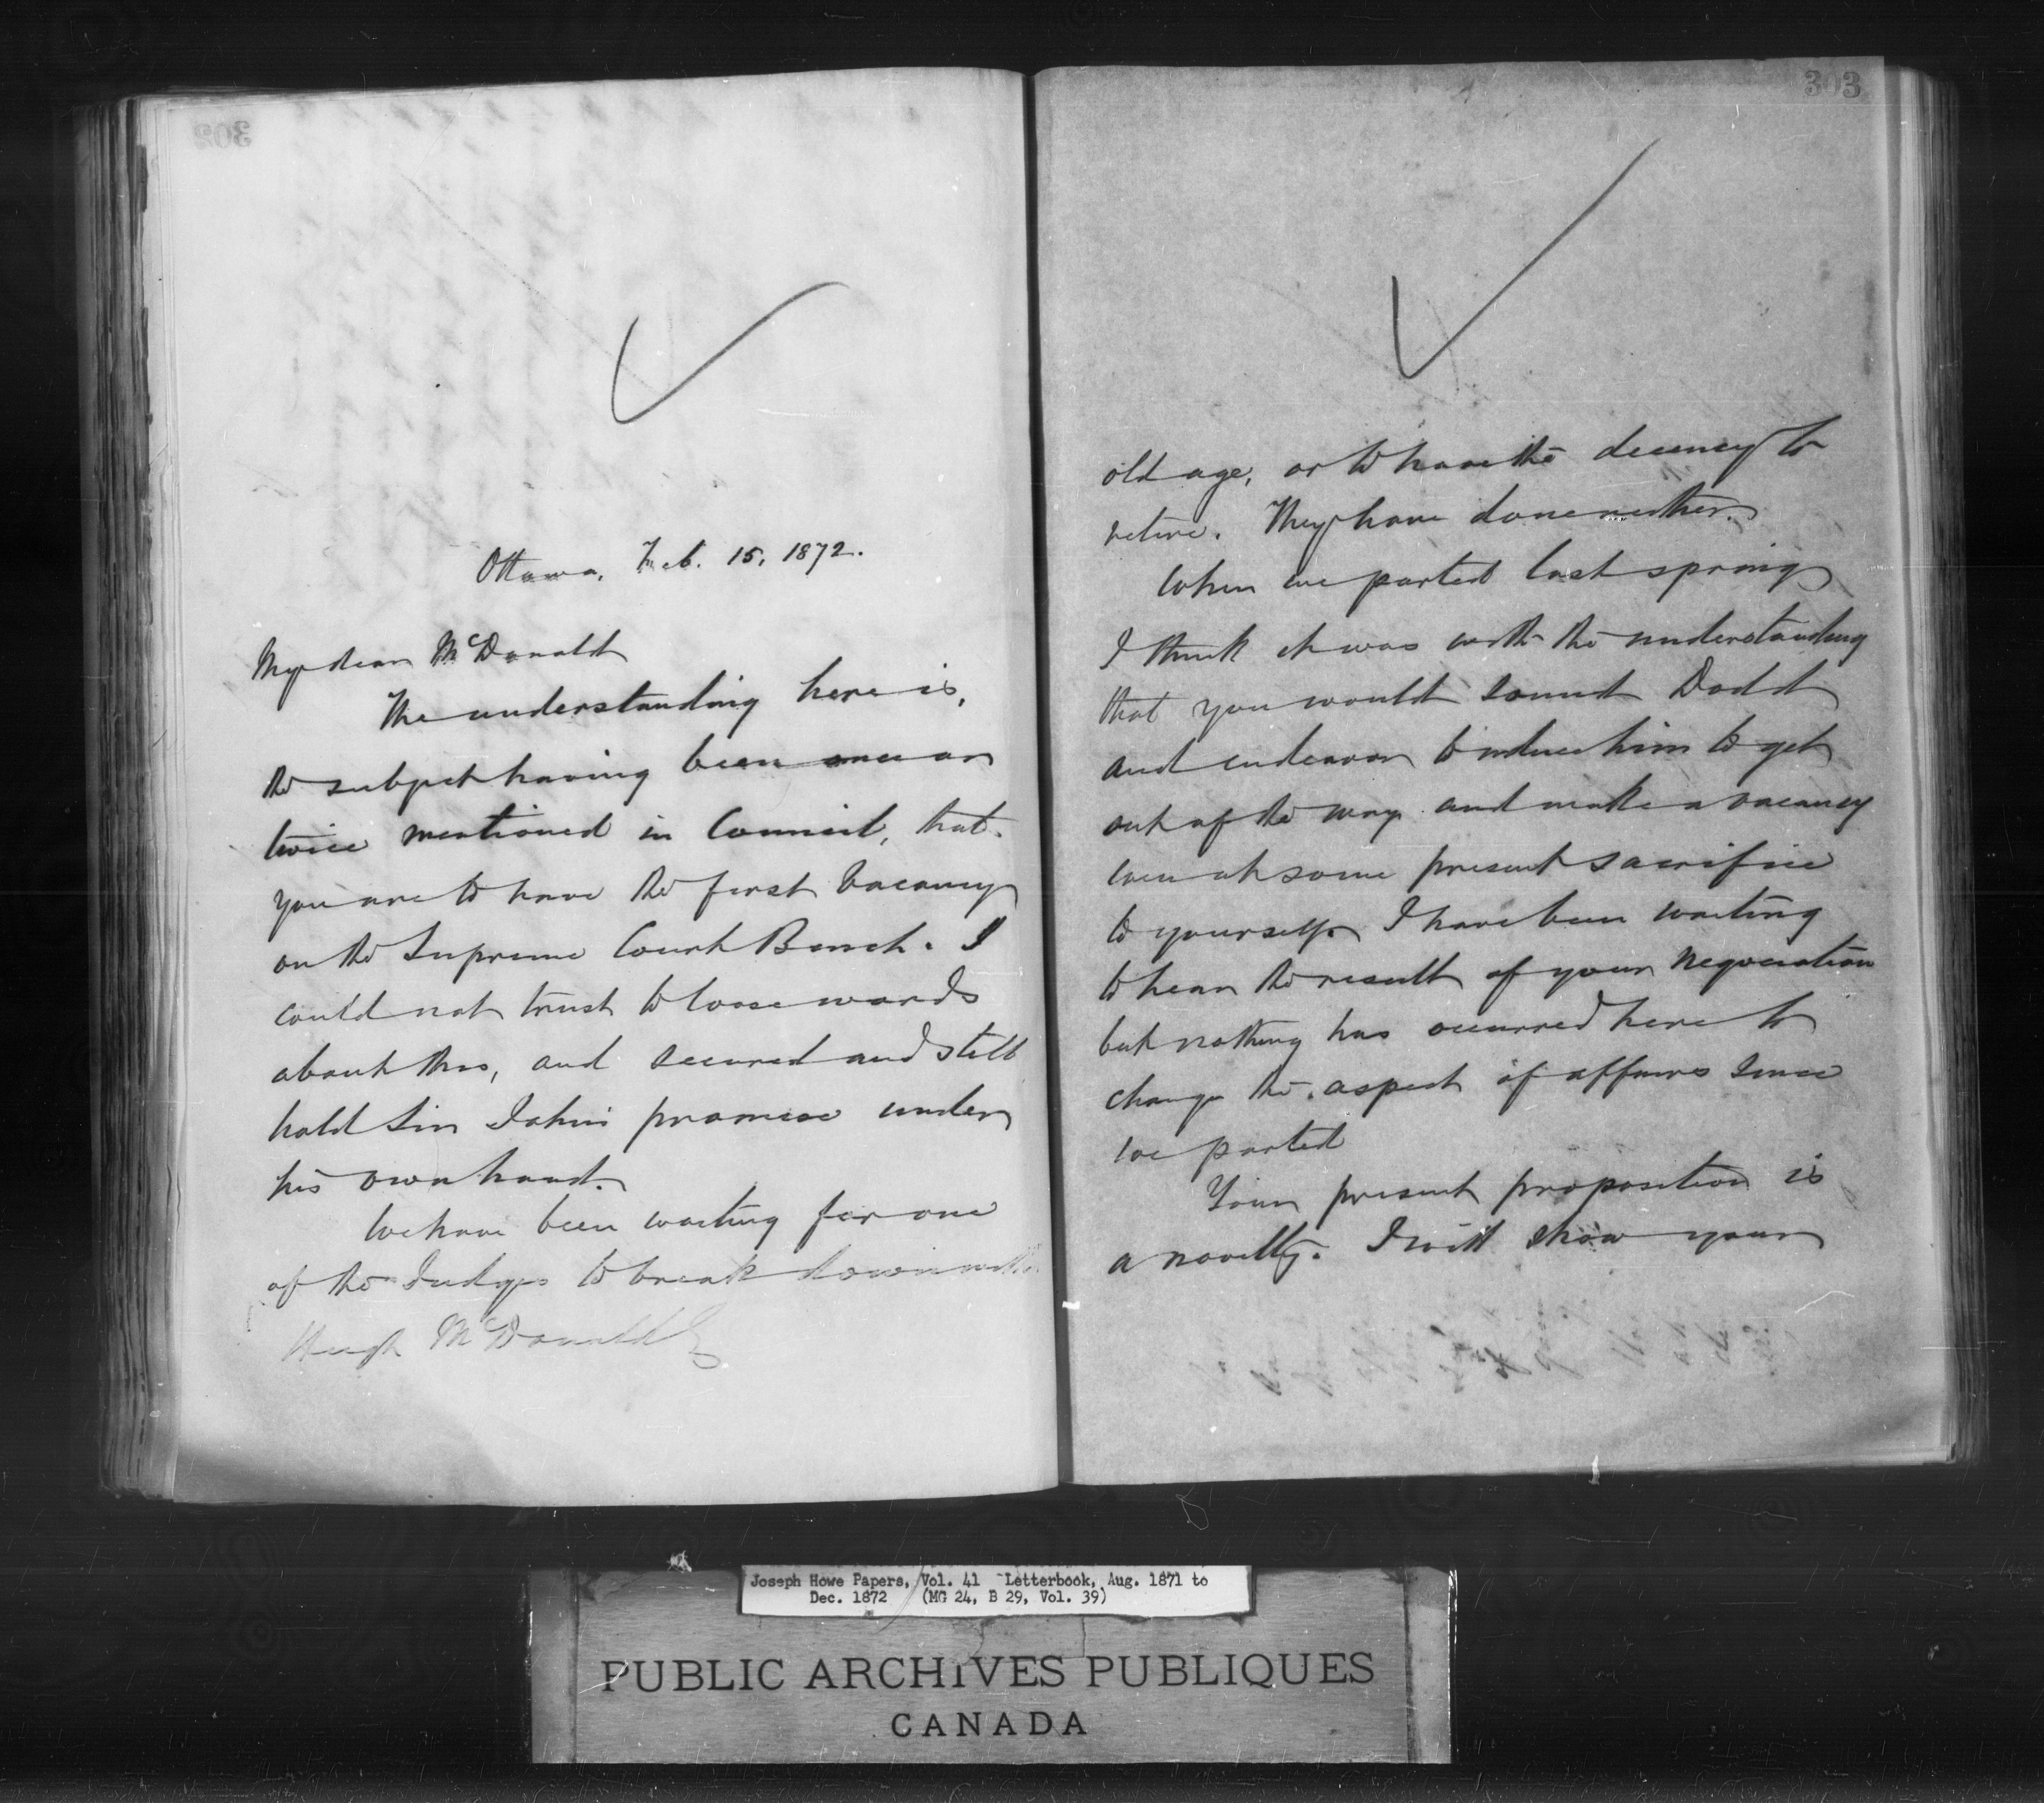 302
Ottawa, Feb. 15, 1872.
My dear McDonald
The understanding here is,
the subject having been once or
twice mentioned in Council, that
you are to have the first vacancy
on the Supreme Court Bench. I
could not trust to loose words
about this, and secured and still
hold Sir John's promise under
his own hand.
We have been waiting for one
of the Judges to break down with
Hugh McDonald
303
old age, or to have the decency to
retire. They have done neither.
When we parted last spring
I think it was with the understanding
that you would sound Dodd
and endeavor to induce him to get
out of the way and make a vacancy
even at some present sacrifice
to yourself. I have been waiting
to hear the result of your negociation
but nothing has occurred here to
change the aspect of affairs since
we parted
Your present proposition is
a novelty. I will show your
Joseph Howe Papers, Vol. 41 - Letterbook, Aug. 1871 to
Dec. 1872 (MG 24, B 29, Vol. 39)
PUBLIC ARCHIVES PUBLIQUES
CANADA